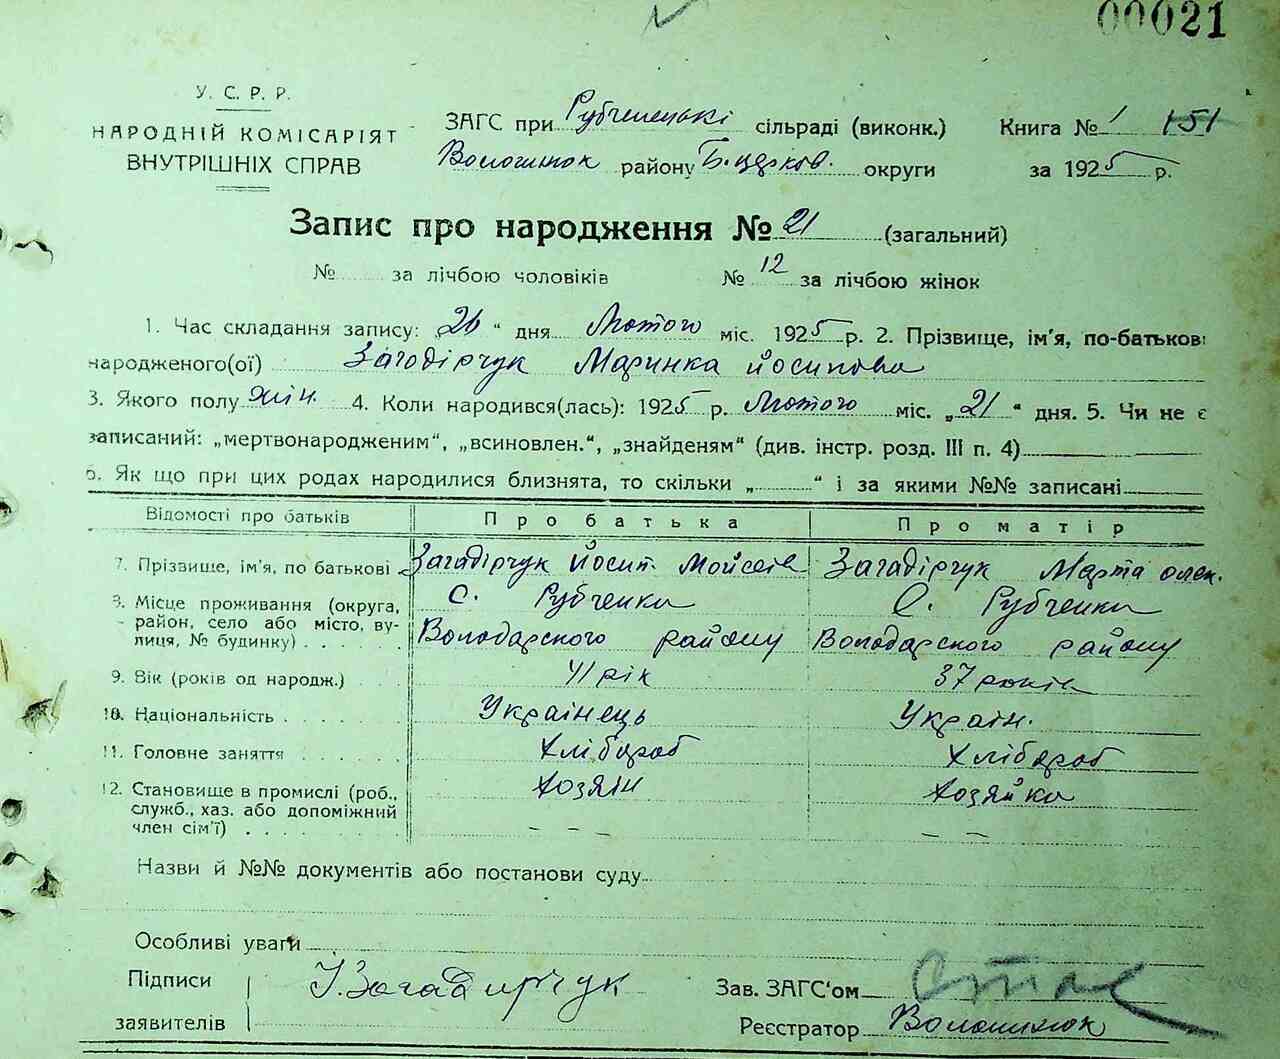 00021
У. С. Р. Р.
НАРОДНІЙ КОМІСАРІЯТ
ВНУТРІШНІХ СПРАВ
ЗАГС при Рубченецькі сільраді (виконк.) Книга № 1 151
району Б.церков. округи за 1925 р.
Запис про народження № 21 (загальний)
№ за лічбою чоловіків № 12 за лічбою жінок
1. Час складання запису: „26“ дня Лютого міс. 1925 р. 2. Прізвище, ім'я, по-батькові
народженого(ої) Загодірчук Маринка Йосипова
3. Якого полу жін. 4. Коли народився(лась): 1925 р. Лютого міс. „21“ дня. 5. Чи не є
записаний: „мертвонародженим“, „всиновлен.“, „знайденям“ (див. інстр. розд. III п. 4)
6. Як що при цих родах народилися близнята, то скільки „ “ і за якими №№ записані
Відомості про батьків Про батька Про матір
7. Прізвище, ім'я, по батькові Загадірчук Йосип. Мойсеїв Загадірчук Марта олек.
8. Місце проживання (округа, с. Рубченки с. Рубченки
район, село або місто, ву-
лиця, № будинку) Володарского району Володарского району
9. Вік (років од народж.) 41 рік 37 років
10. Національність Українець Україн.
11. Головне заняття Хлібороб Хлібороб
12. Становище в промислі (роб., Хозяїн Хозяйка
служб., хаз. або допоміжний
член сім'ї) - - - - - -
Назви й №№ документів або постанови суду
Особливі уваги
Підписи Й. Загадирчук Зав. ЗАГС'ом
заявителів Реєстратор